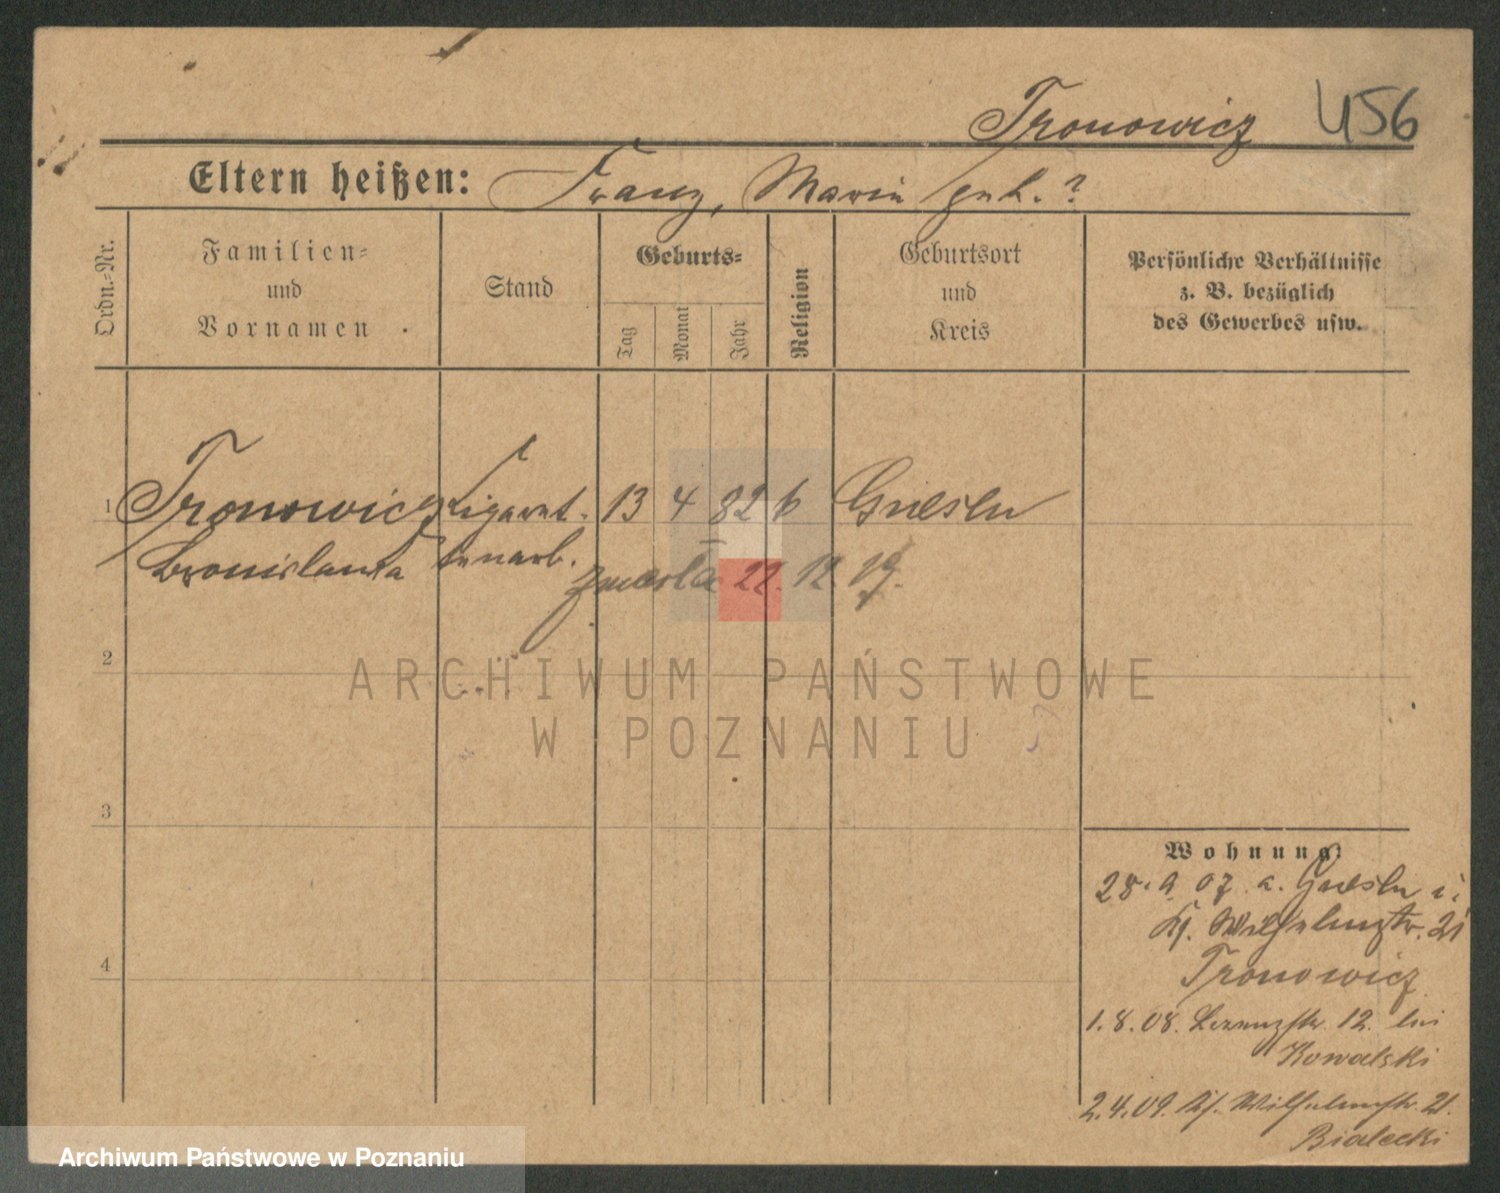 Tronowicz 456
Eltern heißen: Franz, Maria geb. ?
Ordn.-Nr.
Familien-
und
Vornamen
Stand
Geburts-
Tag
Monat
Jahr
Religion
Geburtsort
und
Kreis
Persönliche Verhältnisse
z. B. bezüglich
des Gewerbes usw.
1 Tronowicz Cigaret. 13 4 82 k Gnesen
Bronislawa tenarb. zmarła 22. 12 19.
2
3
4
Wohnung
28. 9 07 a. Gnesen
Wilhelmstr. 21
Tronowicz
1. 8. 08. 12. bei
Kowalski
2. 4. 09. Wilhelmstr. 21.
Bialecki
ARCHIWUM PAŃSTWOWE
W POZNANIU
Archiwum Państwowe w Poznaniu